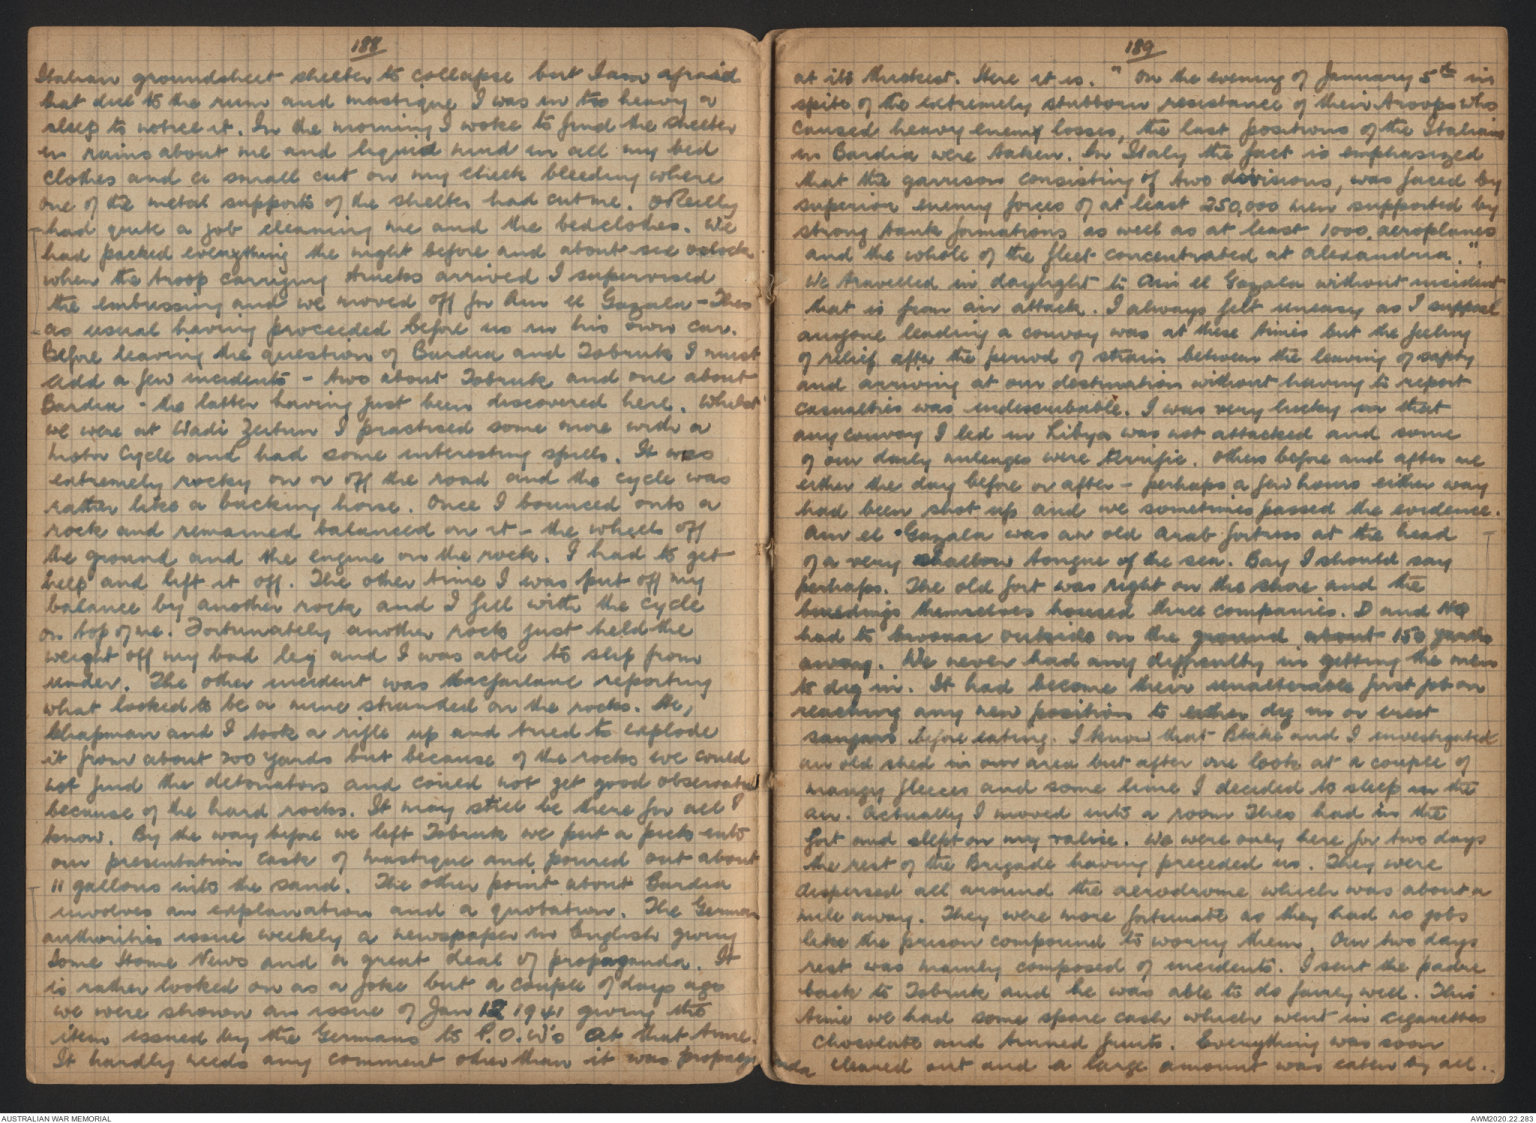 188
Italian groundsheet shelter to collapse but I am afraid
that due to the rum and mastique I was in too heavy a
sleep to notice it. In the morning I woke to find the shelter
in ruins about me and liquid mud in all my bed
clothes and a small cut on my cheek bleeding where
one of the metal supports of the shelter had cut me. O'Reilly
had quite a job cleaning me and the bedclothes. We
had packed everything the night before and about six oclock
when the troop carrying trucks arrived I supervised
the embussing and we moved off for Ain el Gazala - Theo
as usual having proceeded before us in his own car.
Before leaving the question of Bardia and Tobruk I must
add a few incidents - two about Tobruk and one about
Bardia - the latter having just been discovered here. Whilst
we were at Wadi Zeitun I practised some more with a
Motor Cycle and had some interesting spills. It was
extremely rocky on or off the road and the cycle was
rather like a bucking horse. Once I bounced onto a
rock and remained balanced on it - the wheels off
the ground and the engine on the rock. I had to get
help and lift it off. The other time I was put off my
balance by another rock and I fell with the cycle
on top of me. Fortunately another rock just held the
weight off my bad leg and I was able to slip from
under. The other incident was Macfarlane reporting
what looked to be a mine stranded on the rocks. He,
Chapman and I took a rifle up and tried to explode
it from about 200 yards but because of the rocks we could
not find the detonators and could not get good observation
because of the hard rocks. It may still be there for all I
know. By the way before we left Tobruk we put a pick into
our presentation cask of mastique and poured out about
11 gallons into the sand. The other point about Bardia
involves an explanation and a quotation. The German
authorities issue weekly a newspaper in English giving
some Home News and a great deal of propaganda. It
is rather looked on as a joke but a couple of days ago
we were shown an issue of Jan 12 1941 giving the
item issued by the Germans to P.O.W's at that time.
It hardly needs any comment other than it was propaganda
189
at its thickest. Here it is. " On the evening of January 5th in
spite of the extremely stubborn resistance of their troops who
caused heavy enemy losses, the last positions of the Italians
in Bardia were taken. In Italy the fact is emphasized
that the garrison consisting of two divisions, was faced by
superior enemy forces of at least 250,000 men supported by
strong tank formations as well as at least 1000 aeroplanes
and the whole of the fleet concentrated at Alexandria."
We travelled in daylight to Ain el Gazala without incident
that is from air attack. I always felt uneasy as I suppose
anyone leading a convoy was at these times but the feeling
of relief after the period of strain between the leaving of safety
and arriving at our destination without having to report
casualties was indescribable. I was very lucky in that
any convoy I led in Libya was not attacked and some
of our daily mileages were terrific. Others before and after me
either the day before or after - perhaps a few hours either way
had been shot up and we sometimes passed the evidence.
Ain el Gazala was an old Arab fortress at the head
of a very shallow tongue of the sea. Bay I should say
perhaps. The old fort was right on the shore and the
buildings themselves housed three companies. D and HQ
had to bivouac outside on the ground about 150 yards
away. We never had any difficulty in getting the men
to dig in. It had become their unalterable first job on
reaching any new position to either dig in or erect
sangars before eating. I know that Blake and I investigated
an old shed in our area but after one look at a couple of
mangy fleeces and some lime I decided to sleep in the
air. Actually I moved into a room Theo had in the
fort and slept on my valise. We were only here for two days
the rest of the Brigade having preceded us. They were
dispersed all around the aerodrome which was about a
mile away. They were more fortunate as they had no jobs
like the prison compound to worry them. Our two days
rest was mainly composed of incidents. I sent the padre
back to Tobruk and he was able to do fairly well. This
time we had some spare cash which went in cigarettes
chocolate and tinned fruits. Everything was soon
cleared out and a large amount was eaten by all.
AUSTRALIAN WAR MEMORIAL
AWM2020.22.283